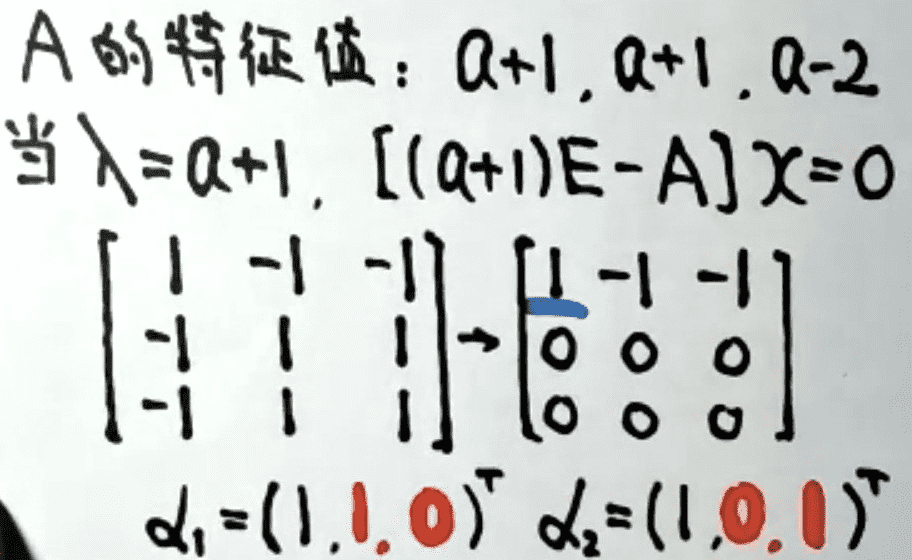 A的特征值：a+1，a+1，a-2
当λ=a+1，[(a+1)E-A]x=0
[1 -1 -1] [1 -1 -1]
[-1 1 1] → [0 0 0]
[-1 1 1] [0 0 0]
α₁=(1,1,0)ᵀ α₂=(1,0,1)ᵀ